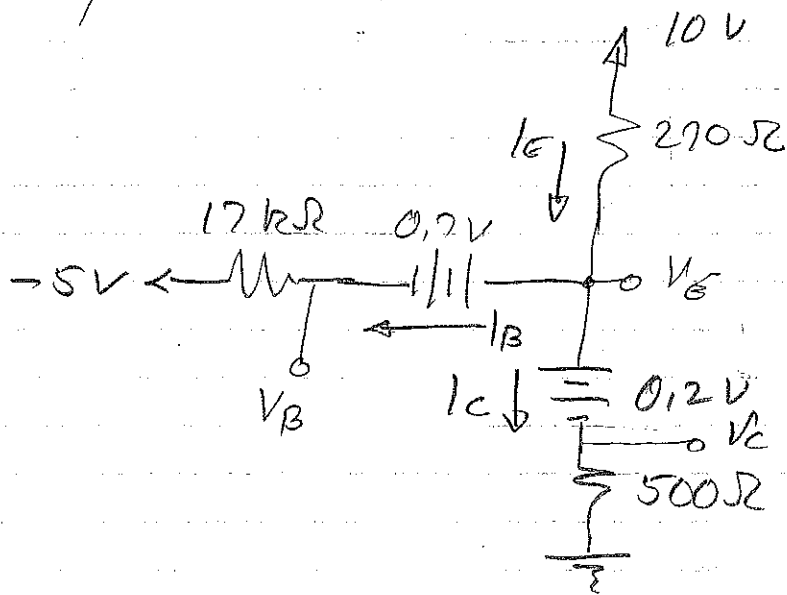 10 V
I_E 270 Ω
17 kΩ 0,7V
-5V V_E
I_B
V_B I_C 0,2V
V_C
500Ω